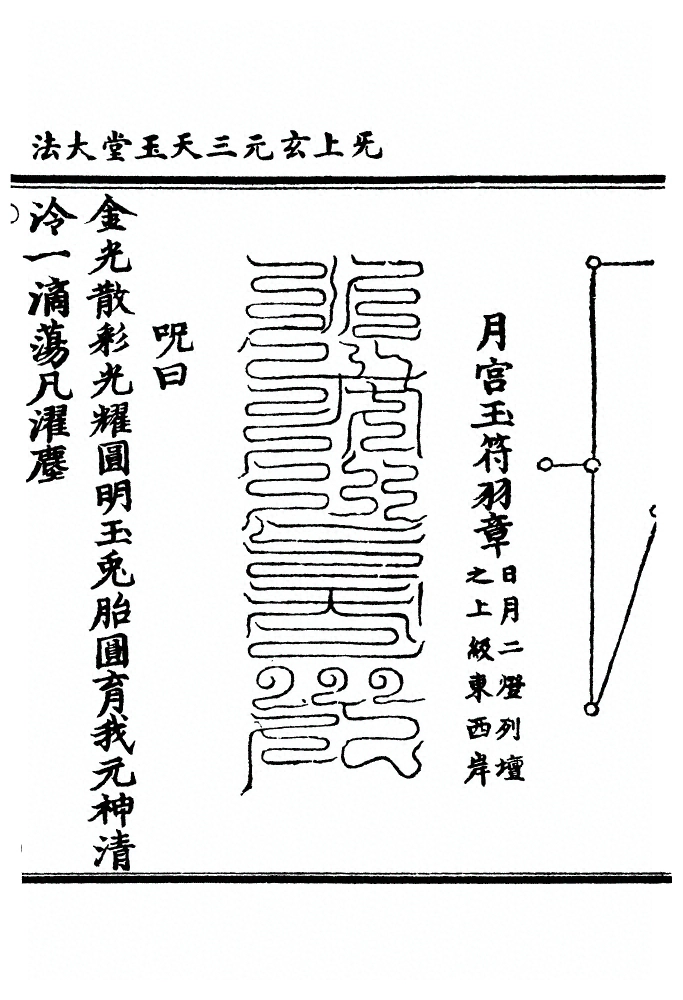 旡上玄元三天玉堂大法
月宮玉符羽章
日月二燈列壇
之上級東西岸
呪曰
金光散彩光耀圓明玉兔胎圓育我元神清
泠一滴蕩凡濯塵